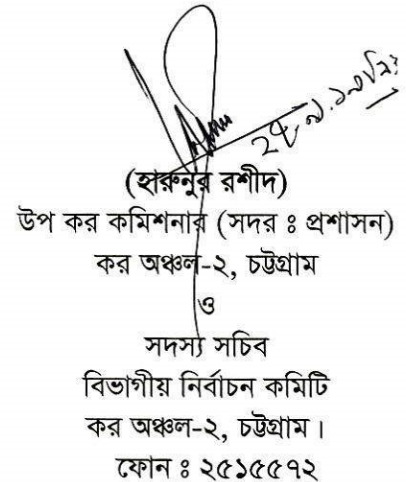 (হারুনুর রশীদ)
উপ কর কমিশনার (সদর ঃ প্রশাসন)
কর অঞ্চল-২, চট্টগ্রাম
ও
সদস্য সচিব
বিভাগীয় নির্বাচন কমিটি
কর অঞ্চল-২, চট্টগ্রাম।
ফোন ঃ ২৫১৫৫৭২